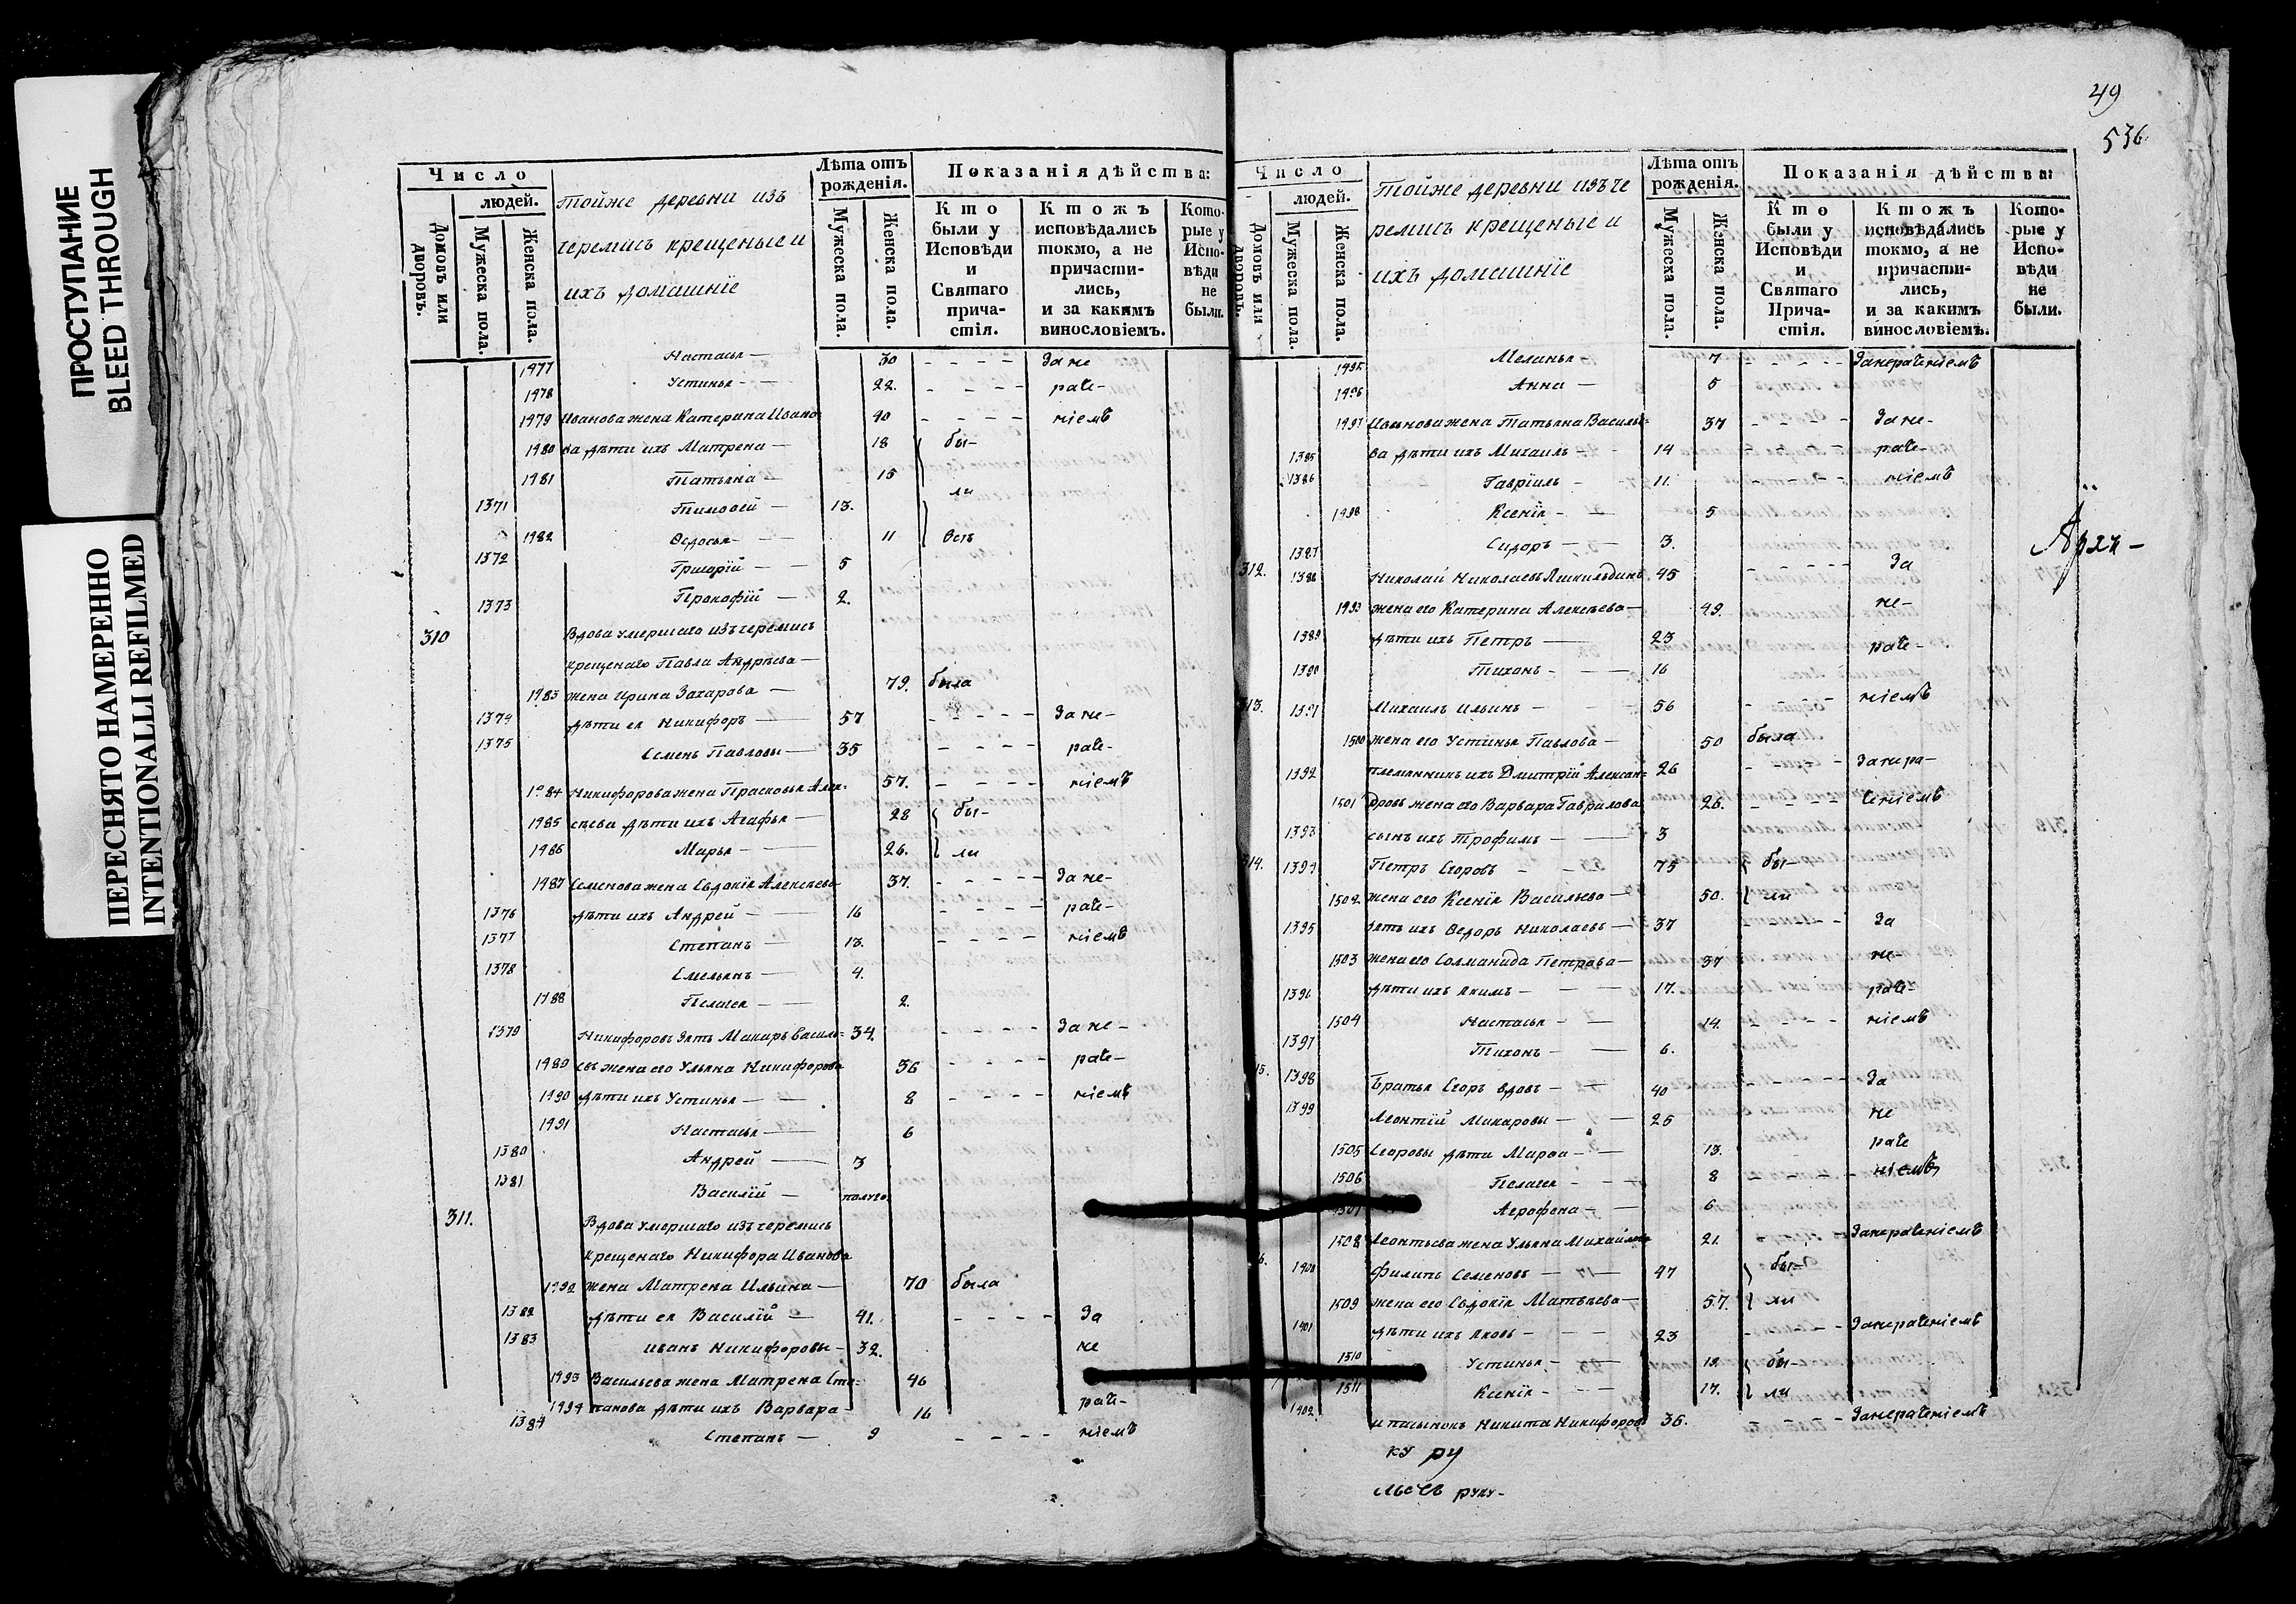 ПРОСТУПАНИЕ
BLEED THROUGH
ПЕРЕСНЯТО НАМЕРЕННО
INTENTIONALLI REFILMED
Число
людей.
Домовъ или дворовъ.
Мужеска пола.
Женска пола.
тойже деревни изъ
черемисъ крещеные и
ихъ домашнїе
Лѣта отъ рожденія.
Мужеска пола.
Женска пола.
Показанія дѣйства:
Кто были у Исповѣди и Святаго причастія.
Ктожъ исповѣдались токмо, а не причастились, и за какимъ винословіемъ.
Которые у Исповѣди не были.
1477 Настасья — 30 - - - - За не
1478 Устинья - — 22. - - - - раче-
1479 Иванова жена Катерина Ивано- 40 - - - - нiемъ
1480 ва дѣти ихъ Матрена — 18 бы-
1481 Татьяна — 15
ли
1371 Тимоѳей — 13.
1482 Ѳедосья - — 11 Всѣ
1372 Григорїй — 5
1373 Прокофїй — 2.
310 Вдова умершаго изъ черемисъ
крещенаго Павла Андрѣева —
1483 жена Ирина Захарова — 79. была
1374 дѣти ея Никифоръ — 57 - - - - За не-
1375 Семенъ Павловы — 35 - - - - раче-
1484 Никифорова жена Прасковья Але- 57. - - - - нiемъ
1485 ксѣева дѣти ихъ Агафья — 28 бы-
1486 Марья - — 26. ли
1487 Семенова жена Евдокїя Алексѣева 37. - - - - За не-
1376 дѣти ихъ Андрей — 16 - - - - раче-
1377 Степанъ — 13. - - - - нiемъ
1378 Емельянъ — 4.
1488 Пелагея — 2.
1379 Никифоровъ зять Макаръ Василь= 34. - - - - За не-
1489 евъ жена его Ульяна Никифорова 36 - - - - раче-
1490 дѣти ихъ Устинья — 8 - - - - нiемъ
1491 Настасья — 6
1380 Андрей — 3
1381 Василїй — полуго.
311. Вдова умершаго изъ черемисъ
крещенаго Никифора Иванова
1492 жена Матрена Ильина — 70 была
1382 дѣти ея Василїй — 41. - - - - За
1383 Иванъ Никифоровы - 32. не
1493 Васильева жена Матрена Сте= 46
1494 панова дѣти ихъ Варвара 16 раче-
1384 Степанъ — 9 - - - - нiемъ
49
536
Число
людей.
Домовъ или дворовъ.
Мужеска пола.
Женска пола.
тойже деревни изъ че
ремисъ крещеные и
ихъ домашнїе
Лѣта отъ рожденія.
Мужеска пола.
Женска пола.
Показанія дѣйства:
Кто были у Исповѣди и Святаго Причастія.
Ктожъ исповѣдались токмо, а не причастились, и за какимъ винословіемъ.
Которые у Исповѣди не были.
1495 Меланья - 7 - - - - За нерачениемъ
1496 Анна — 5
1497 Иванова жена Татьяна Василье= 37 - - - - За не-
1385 ва дѣти ихъ Михаилъ - 14 раче-
1386 Гаврїилъ - 11. - - - - нiемъ
1498 Ксенїя - — 5
Архи-
1387 Сидоръ - — 3.
312. 1388 Николай Николаевъ 45 - - - - За
1499 жена его Катерина Алексѣева — 49. не-
1389 дѣти ихъ Петръ — 23 раче-
1390 Тихонъ - — 16
313. 1391 Михаилъ Ильинъ - 56 - - - нiемъ
1500 жена его Устинья Павлова — 50 была
1392 племянникъ ихъ Дмитрїй Алексан= 26 - - - За нера-
1501 дровъ жена его Варвара Гаврилова 26. - - - - ченiемъ
1393 сынъ ихъ Трофимъ - — 3
314. 1394 Петръ Егоровъ - 75 бы-
1502. жена его Ксенїя Васильева — 50. ли
1395 зять ихъ Ѳедоръ Николаевъ — 37 - - - За
1503 жена его Соломанида Петрова — 37 не-
1396 дѣти ихъ Якимъ - — 17. раче-
1504 Настасья - — 14. - - - - нiемъ
1397 Тихонъ - — 6.
15. 1398 Братья Егоръ вдовъ - — 40 - - - - За
1399 Леонтїй Макаровы - — 25 не
1505 Егоровы дѣти Марѳа - — 13. раче
1506 Пелагея - 8 - - - - нiемъ
1507 Агрофена - — 6
1508 Леонтьева жена Ульяна Михайлова 21. За нераченiемъ
6. 1400 Филипъ Семеновъ - — 47 бы-
1509 жена его Евдокїя Матвѣева — 57. ли
1401 дѣти ихъ Яковъ - — 23 - - - За нераченiемъ
1510 Устинья - — 19. бы-
1511 Ксенїя - — 17. ли
1402 и пасынокъ Никита Никифоров 36. - За нераченiемъ
ку ру